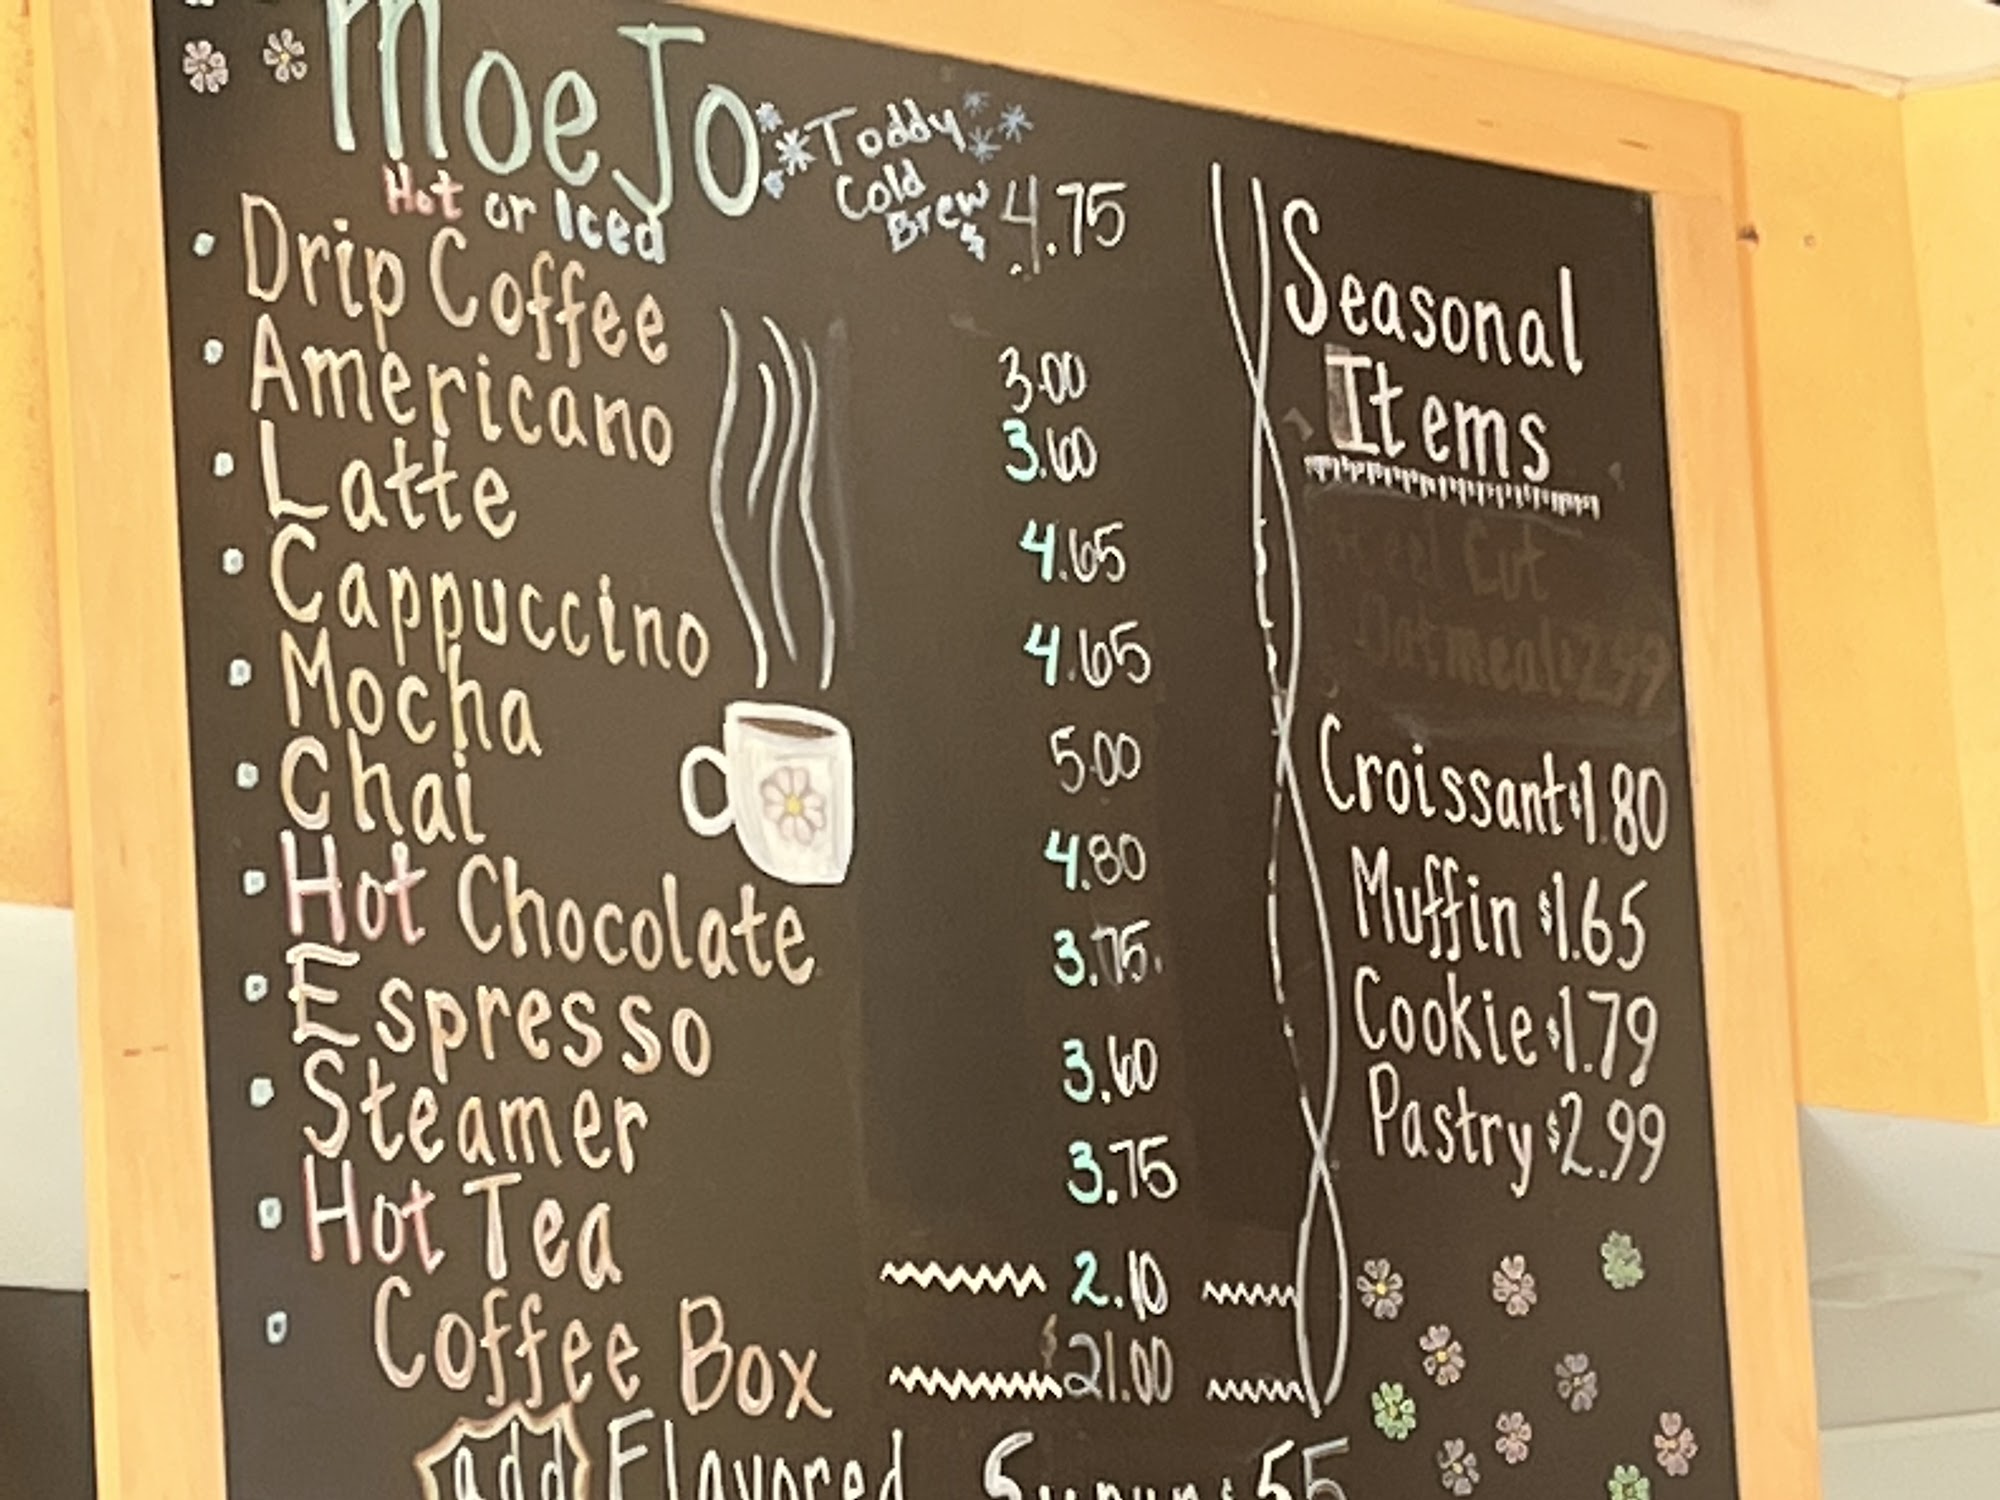 MoeJo
Hot or Iced
Toddy
Cold
Brew
$4.75
Drip Coffee 3.00
Americano 3.60
Latte 4.65
Cappuccino 4.65
Mocha 5.00
Chai 4.80
Hot Chocolate 3.75
Espresso 3.60
Steamer 3.75
Hot Tea 2.10
Coffee Box $21.00
add Flavored Syrup
Seasonal
Items
Cut
Oatmeal 2.99
Croissant $1.80
Muffin $1.65
Cookie $1.79
Pastry $2.99